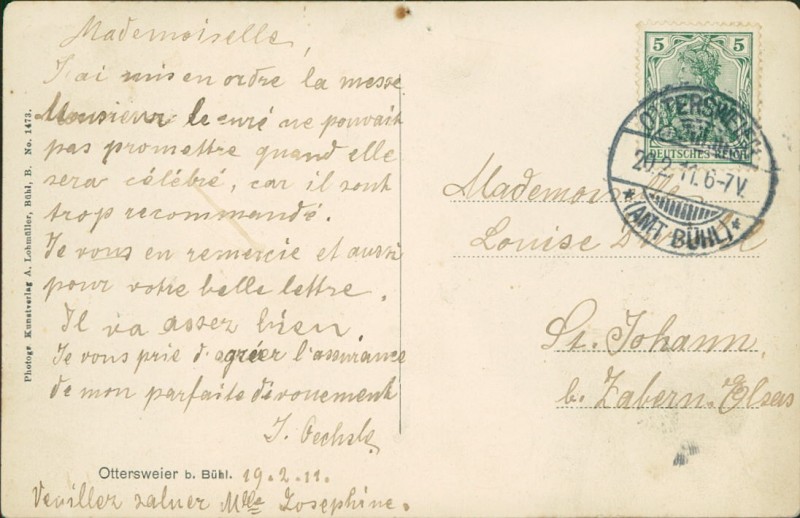 Mademoiselle,
J'ai mis en ordre la messe
Monsieur le curé ne pouvait
pas promettre quand elle
sera célébré, car il sont
trop recommandé.
Je vous en remercie et aussi
pour votre belle lettre.
Il va assez bien.
Je vous prie d'agréer l'assurance
de mon parfaite dévouement
J. Oechsle
Ottersweier b. Bühl. 19.2.11.
Veuillez saluer Mlle Josephine.
Photogr. Kunstverlag A. Lohmüller, Bühl, B. No. 1473.
5 5
DEUTSCHES REICH
OTTERSWEIER
20.2.11.6-7V.
*(AMT BÜHL)*
Mademoiselle
Louise
St. Johann,
b. Zabern. Elsas